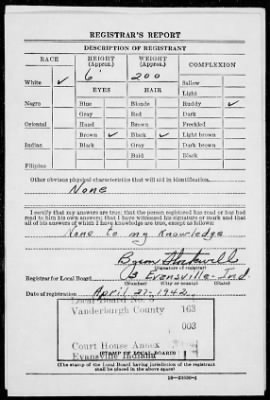 REGISTRAR'S REPORT
DESCRIPTION OF REGISTRANT
RACE HEIGHT (Approx.) WEIGHT (Approx.) COMPLEXION
White ✓ 6' 200 Sallow
Light
EYES HAIR
Negro Blue Blonde Ruddy ✓
Gray Red Dark
Oriental Hazel Brown Freckled
Brown ✓ Black ✓ Light brown
Indian Black Gray Dark brown
Bald Black
Filipino
Other obvious physical characteristics that will aid in identification
None
I certify that my answers are true; that the person registered has read or has had read to him his own answers; that I have witnessed his signature or mark and that all of his answers of which I have knowledge are true, except as follows:
None to my Knowledge
Byron
(Signature of registrar)
Registrar for Local Board 3 Evansville - Ind
(Number) (City or county) (State)
Date of registration April 27-1942
Local Board No. 3
Vanderburgh County 163
003
Court House Annex
Evansville Indiana
(STAMP OF LOCAL BOARD)
(The stamp of the Local Board having jurisdiction of the registrant shall be placed in the above space)